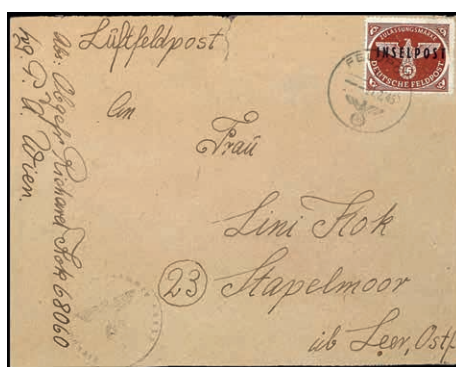 Luftfeldpost
ZULASSUNGSMARKE
INSELPOST
DEUTSCHE FELDPOST
An
Frau
Lini Kok
23 Stapelmoor
üb Leer, Ostf
Abs: Richard Kok 68060
Wien.